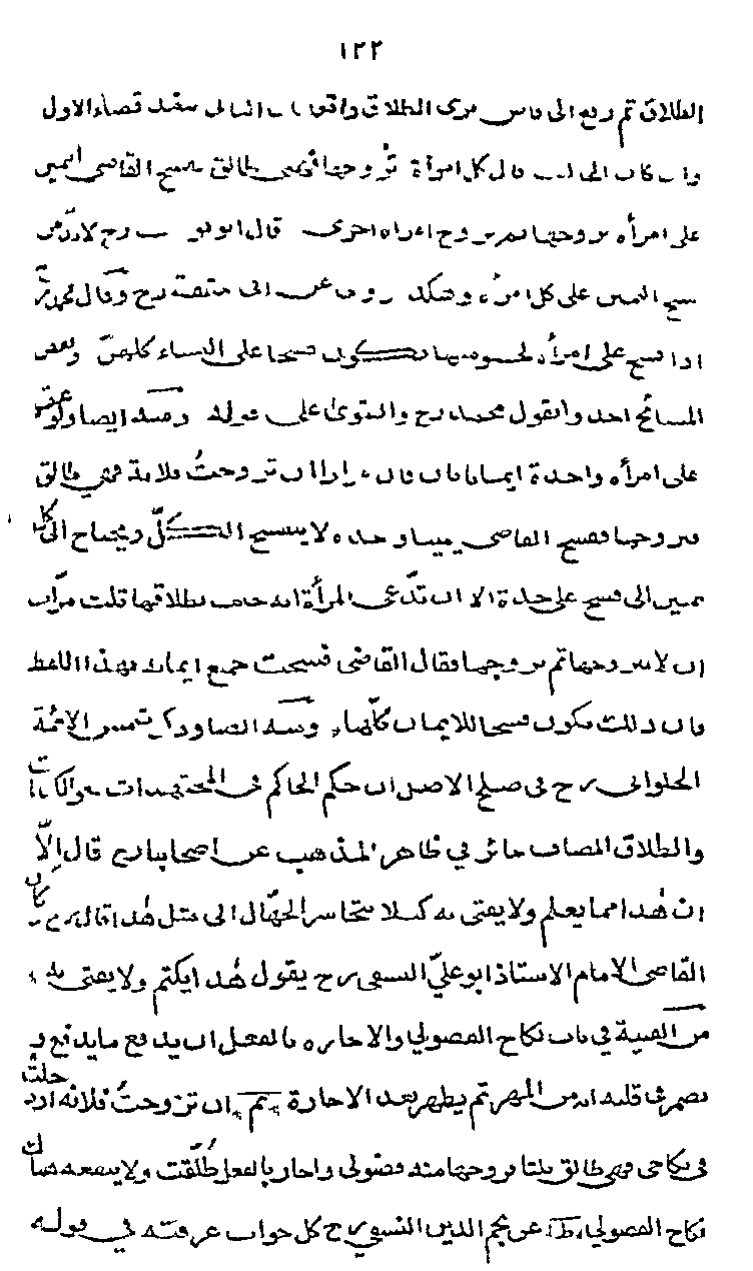 ١٢٢
الطلاق ثم رفع الى قاض يرى الطلاق واقعا الثانى ينفذ قضاء الاول
وان كان الحالف قال كل امرأة تزوجها فهى طالق ففسخ القاضى اليمين
على امرأه تزوجها ثم تزوج امراه اخرى قال ابو يوسف رح
فسخ اليمين على كل امرأه وهكذا روى عن ابى حنيفة رح وقال محمد رح
اذا فسخ على امرأه لا يكون فسخا على النساء كلهنّ وبعض
المشائخ اخذوا بقول محمد رح والفتوى على قوله وصـه ايضا ولو عقد
على امرأه واحدة ايمانا بان قال ان تزوجتُ فلانة فهي طالق
فتزوجها ففسخ القاضى يمينا واحده لا ينفسخ الكلّ ويحتاج الى كل
يمين الى فسخ على حدة الا ان تدّعى المرأة انه حلف بطلاقها ثلث مرّات
ان لا يتزوجها ثم تزوجها فقال القاضى فسخت جميع ايمانك بهذا اللفظ
فان ذلك يكون فسخا للايمان كلّها وصـه ايضا وذكر شمس الائمة
الحلوانى رح فى صلح الاصل ان حكم الحاكم فى المجتهدات نحو الكنايات
والطلاق المضاف جائز في ظاهر المذهب عن اصحابنا رح قال إلّا
ان هٰذا مما يعلم ولا يفتى به كيلا يتجاسر الجهّال الى مثل هٰذا قال رح كان
القاضى الامام الاستاذ ابو عليّ النسفى رح يقول هٰذا يكتم ولا يفتى به
من القنية فى باب نكاح الفضولي والاجازه بالفعل ان يدفع ما يدفع و
يضمر فى قلبه انه من المهر ثم يظهر بعد الاجازة ثم ان تزوجتُ فلانه او دخلت
فى نكاحى فهى طالق ثلثا فزوجها منه فضولى واجاز بالفعل طُلّقت ولا ينفعه هناك
نكاح الفضولي طـ عن نجم الدين النسفي رح كل جواب عرفته فى قوله